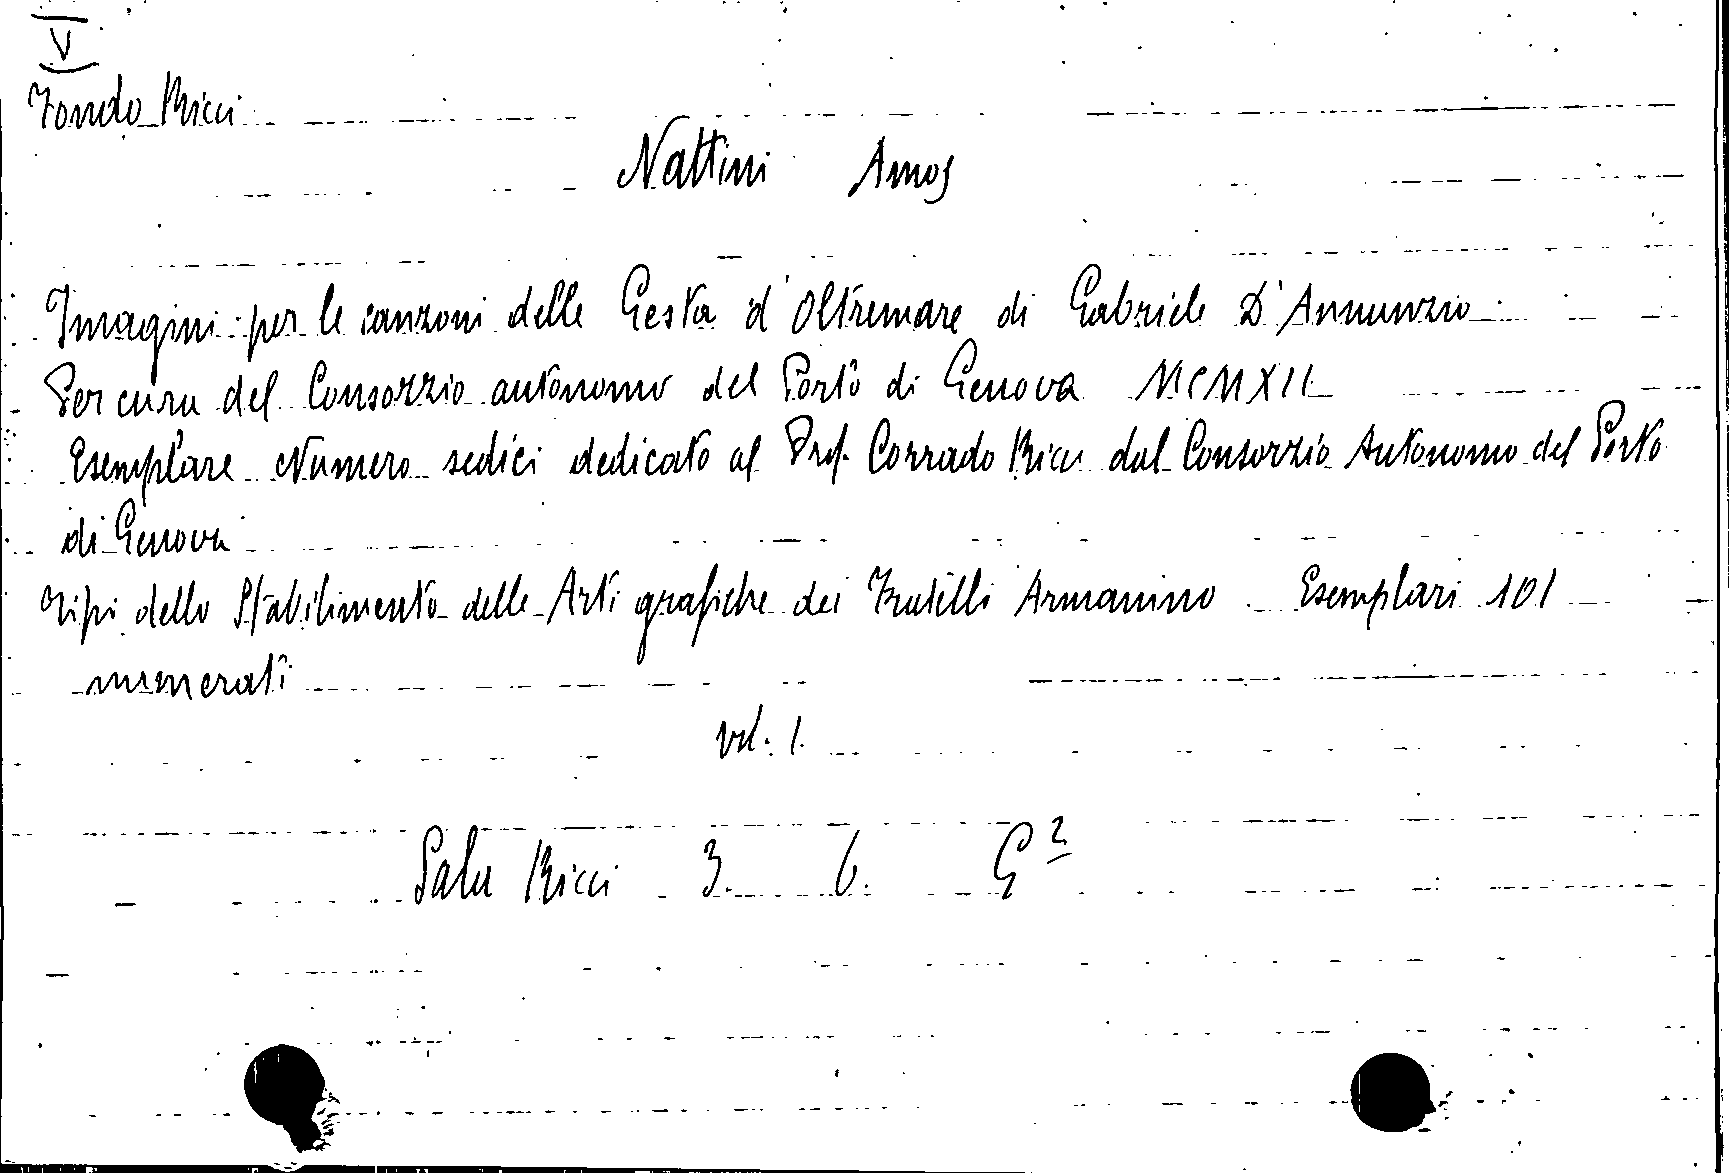 V
Fondo Ricci
Nattini Amos
Imagini per le canzoni delle Gesta d'Oltremare di Gabriele D'Annunzio
Per cura del Consorzio autonomo del Porto di Genova MCMXII
Esemplare Numero sedici dedicato al Prof. Corrado Ricci dal Consorzio Autonomo del Porto
di Genova
Tipi dello Stabilimento delle Arti grafiche dei Fratelli Armanino Esemplari 101
numerati
vol. 1.
Sala Ricci 3. 6. G²